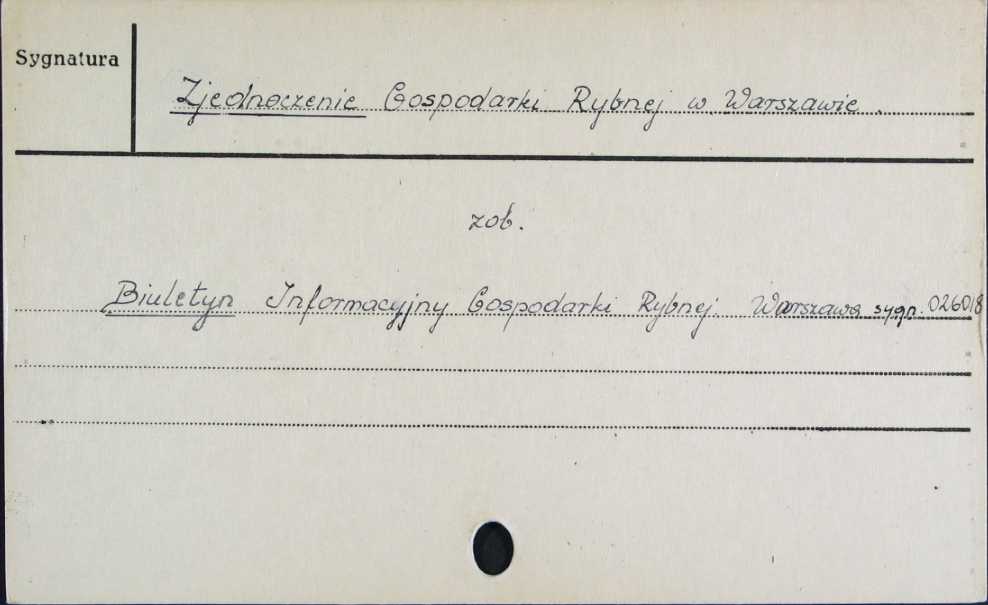 Sygnatura
Zjednoczenie Gospodarki Rybnej w Warszawie.
zob.
Biuletyn Informacyjny Gospodarki Rybnej. Warszawa sygn. 026018